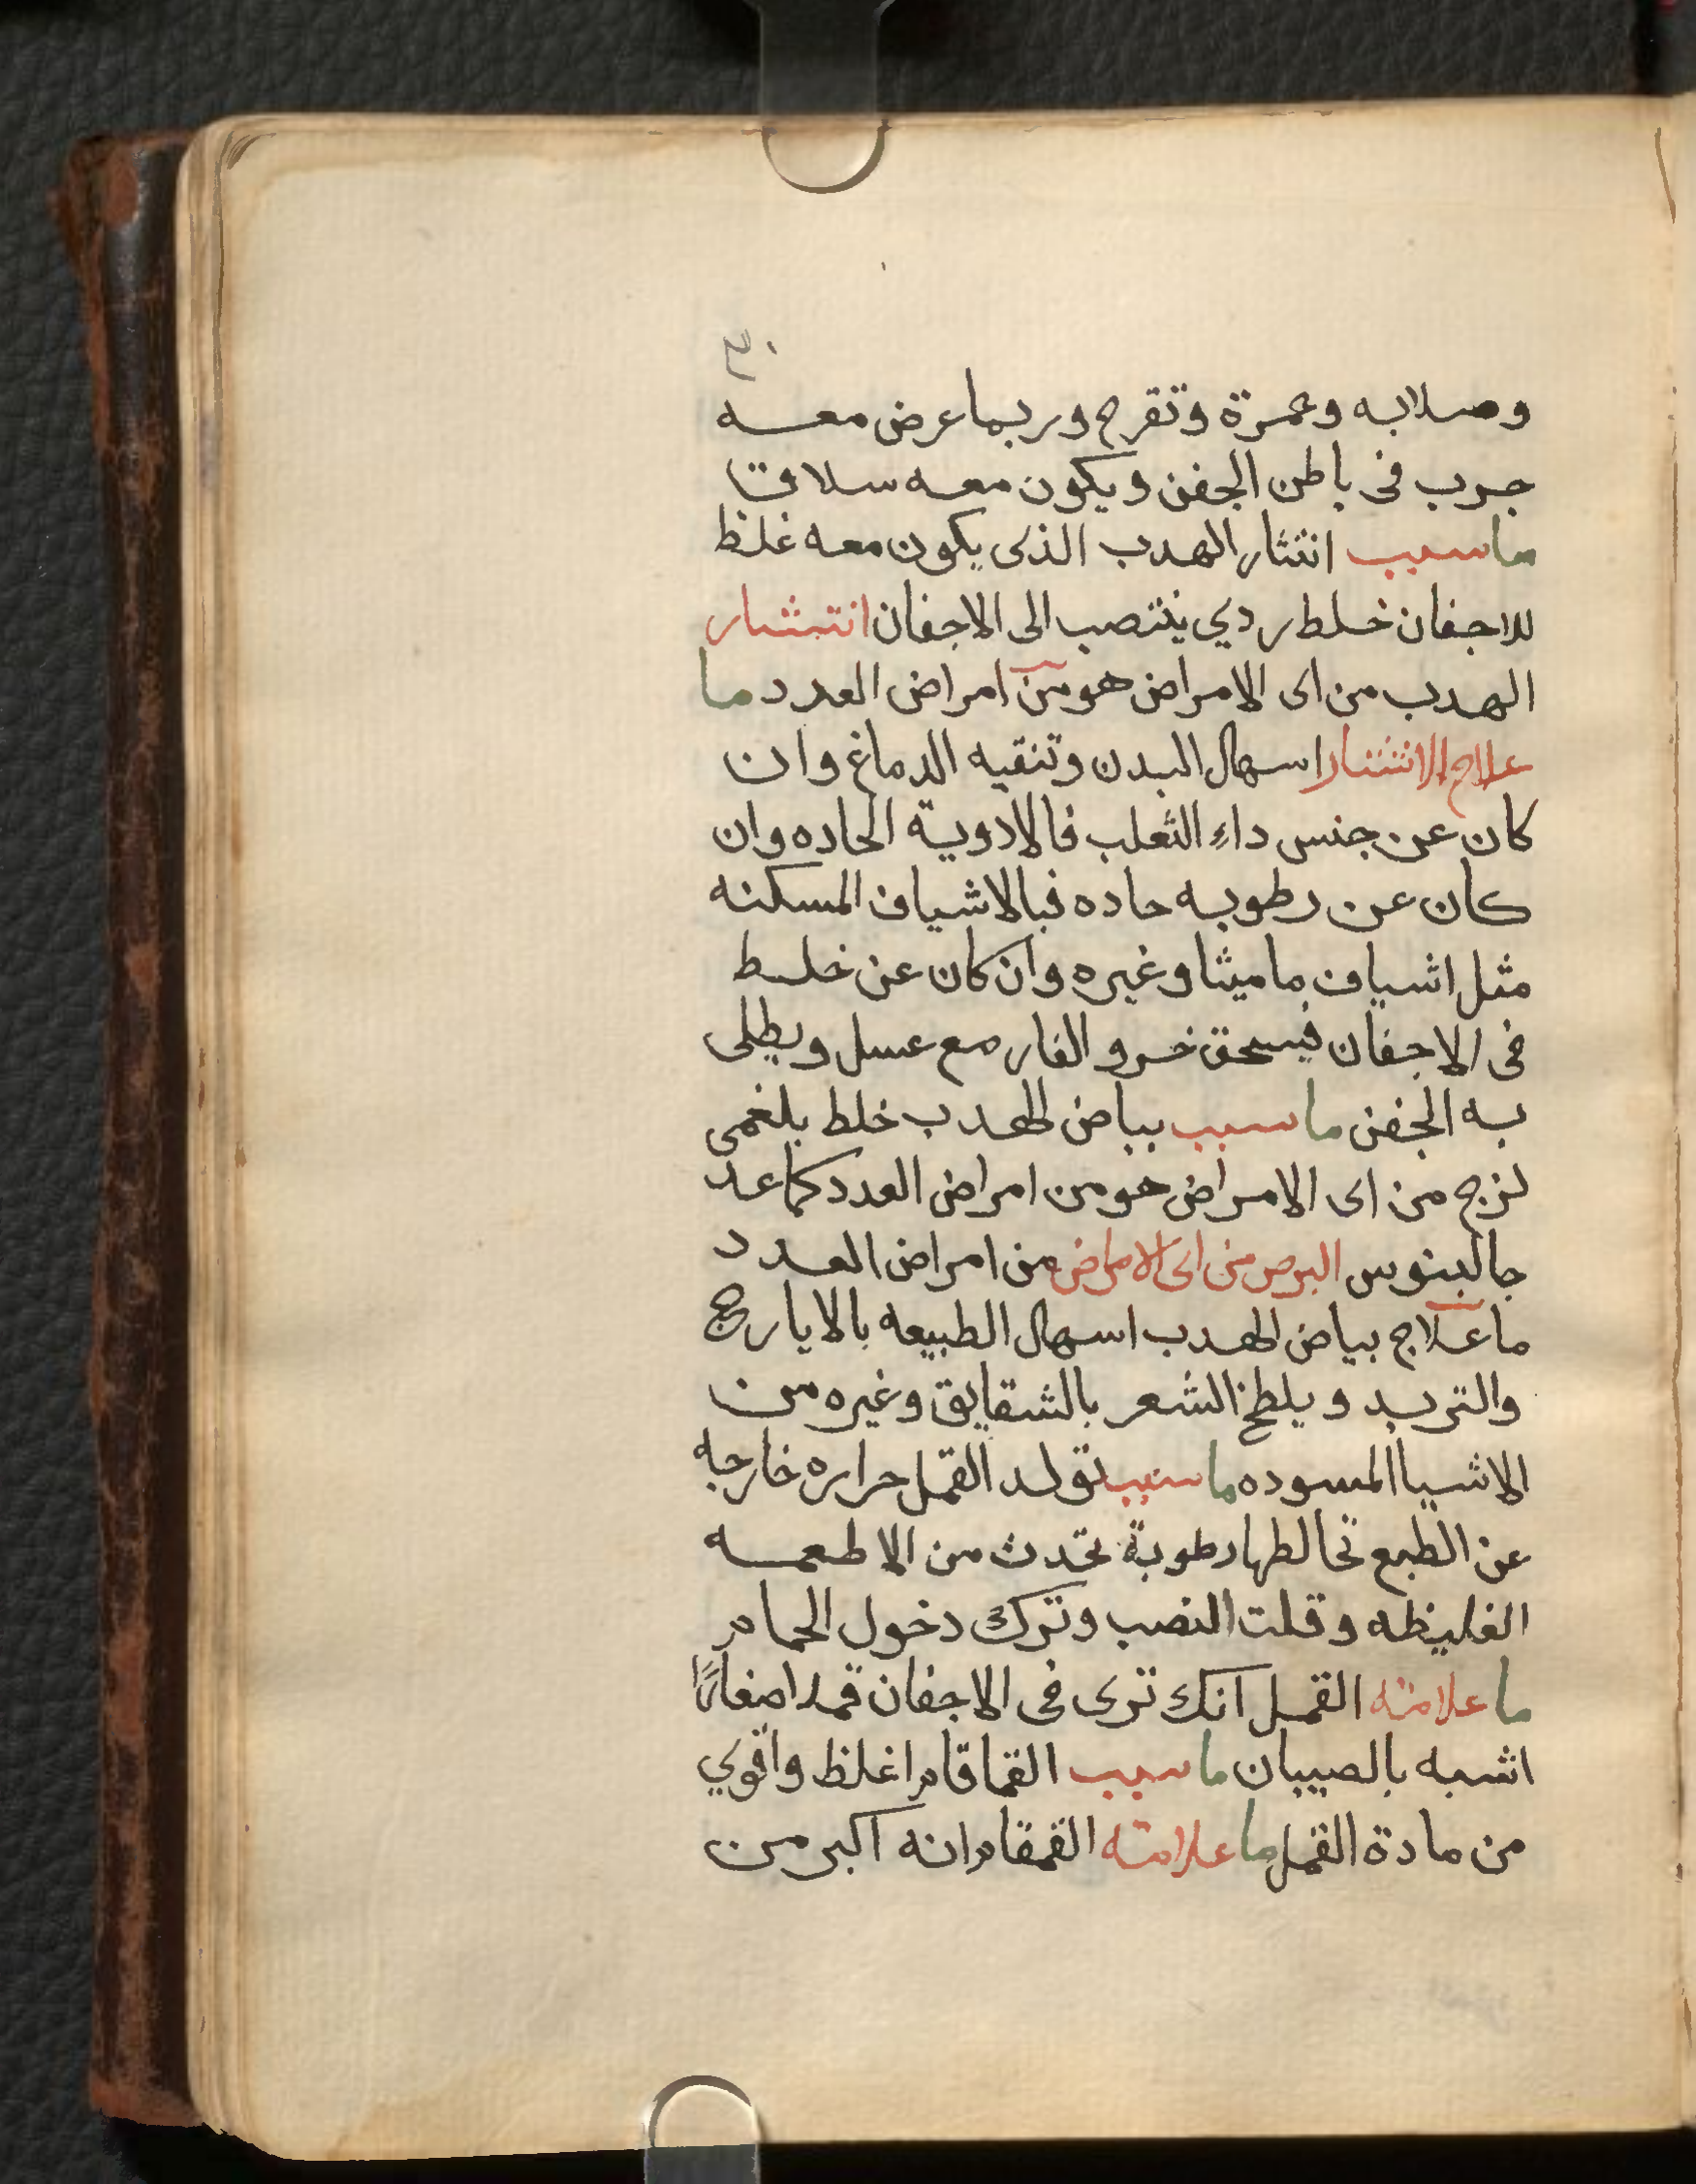 وصلابه وحمرة وتقرح وربما عرض معه
جرب فى باطن الجفن ويكون معه سلاقا
ما سبب انتثار الهدب الذى يكون معه غلظ
للاجفان خلط ردي ينتصب الى الاجفان انتثار
الهدب من اى الامراض هو من امراض العدد ما
علاج الانتثار اسهال البدن وتنقيه الدماغ وان
كان عن جنس داء الثعلب فالادوية الحاده وان
كان عن رطوبه حاده فبالاشياف المسكنه
مثل اشياف ماميثا وغيره وان كان عن خلط
فى الاجفان فيسحق خرو الفار مع عسل ويطلى
به الجفن ما سبب بياض الهدب خلط بلغمى
لزج من اى الامراض هو من امراض العدد كما عد
جالينوس البرص من اى الامراض من امراض العدد
ما علاج بياض الهدب اسهال الطبيعه بالايارج
والتربد ويلطخ الشعر بالشقايق وغيره من
الاشيا المسوده ما سبب تولد القمل حراره خارجه
عن الطبع تخالطها رطوبة تحدث من الاطعمه
الغليظه وقلت النصب وترك دخول الحمام
ما علامته القمل انك ترى فى الاجفان قملا صغارًا
اشبه بالصيبان ما سبب القماقام اغلظ واقوي
من مادة القمل ما علامته القمقام انه اكبر من